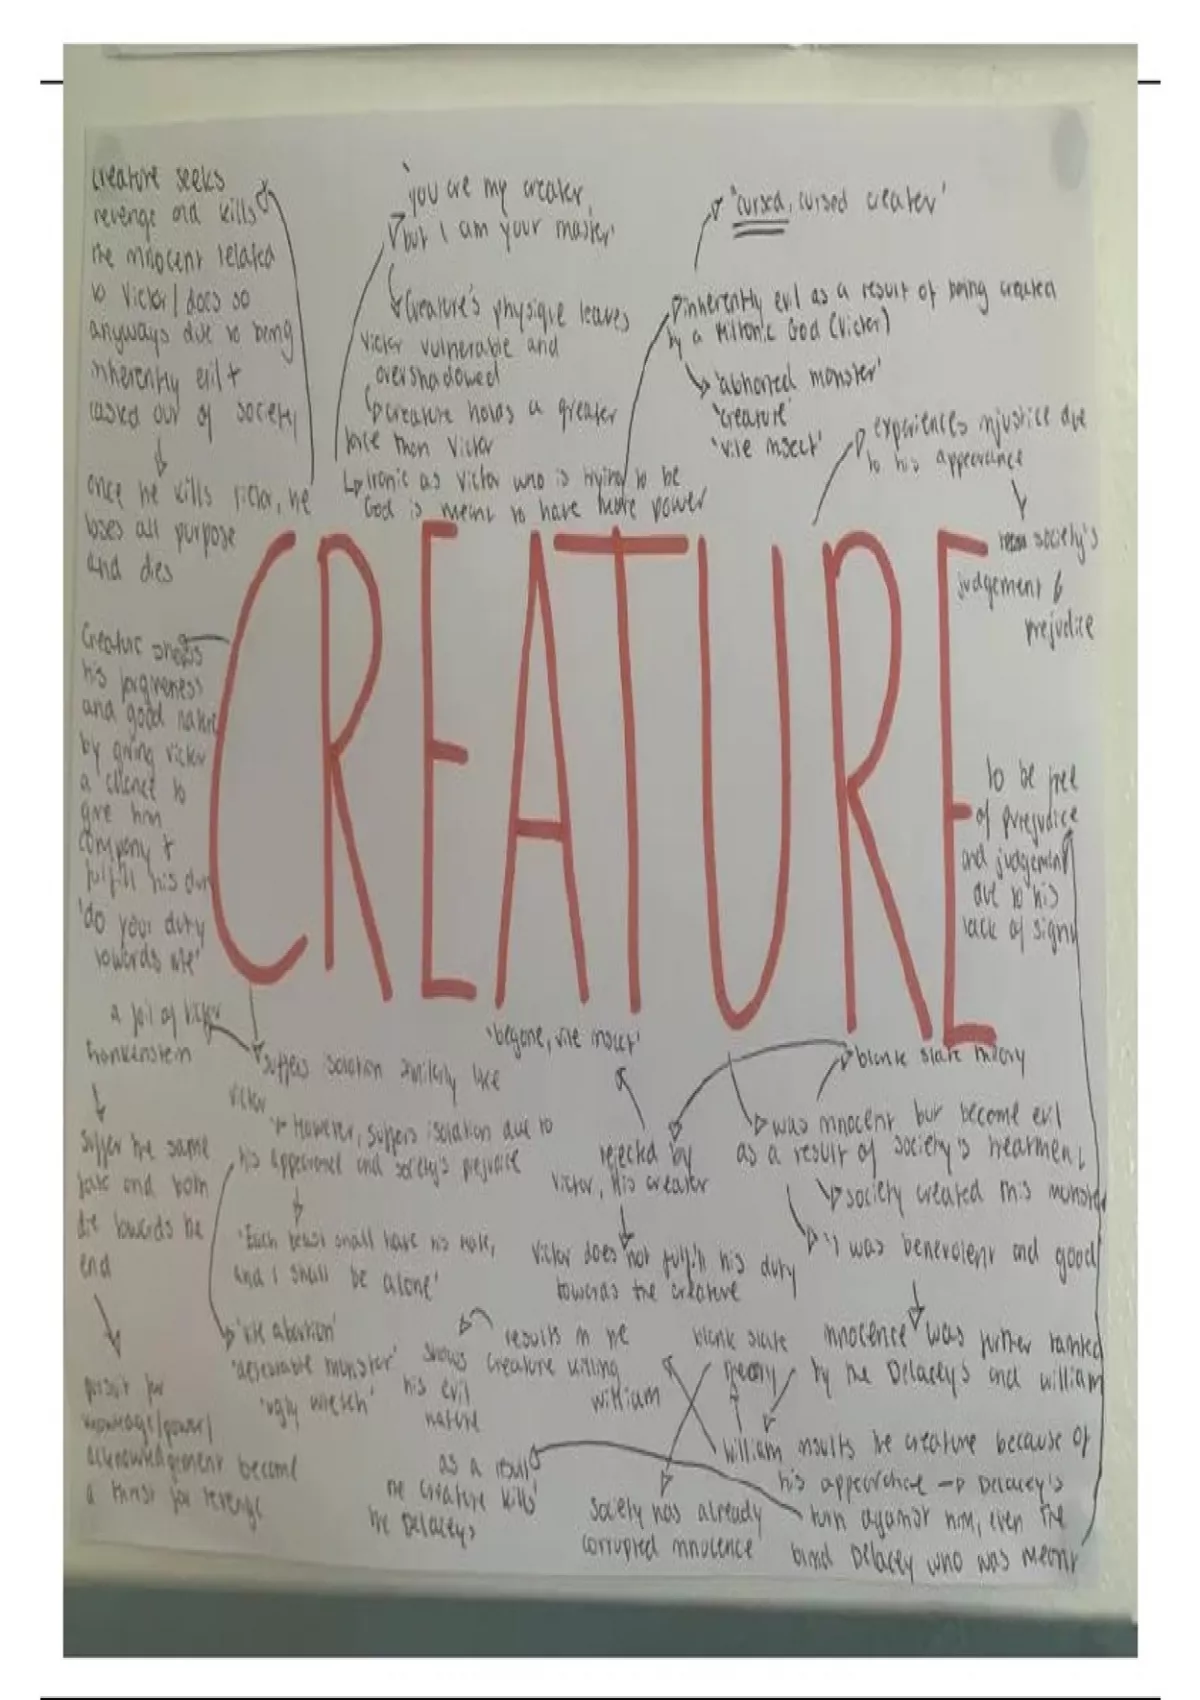 creature seeks
revenge and kills
the innocent related
to Victor / does so
anyways due to being
inherently evil +
casked out of society
once he kills victor, he
loses all purpose
and dies
'you are my creater,
but I am your master'
Creature's physique leaves
victor vulnerable and
overshadowed
creature holds a greater
force than Victor
ironic as Victor who is trying to be
God is meant to have more power
'cursed, cursed creater'
inherently evil as a result of being created
by a Miltonic God (Victor)
'abhorred monster'
'creature'
'vile insect'
experiences injustice due
to his appearance
society's
judgement &
prejudice
CREATURE
Creature shows
his forgiveness
and good nature
by giving victor
a chance to
give him
company +
fulfill his duty
'do your duty
towards me'
to be free
of prejudice
and judgement
due to his
lack of sight
a foil of Victor
frankenstein
suffer the same
fate and both
die towards the
end
pursuit for
knowledge/power/
acknowledgement become
a thirst for revenge
suffers isolation similarly like
victor
However, suffers isolation due to
his appearance and society's prejudice
'Each beast shall have his mate,
and I shall be alone'
'vile abortion'
'detestable monster'
'ugly wretch'
'begone, vile insect'
rejected by
Victor, His creater
Victor does not fulfill his duty
towards the creature
results in the
creature killing
william
shows
his evil
nature
blank slate theory
was innocent but become evil
as a result of society's treatment
society created this monster
'I was benevolent and good'
innocence was further tainted
by the Delacey's and william
blank slate
theory
william insults the creature because of
his appearance → Delacey's
turn against him, even the
blind Delacey who was meant
as a result
the creature kills
the Delaceys
society has already
corrupted innocence